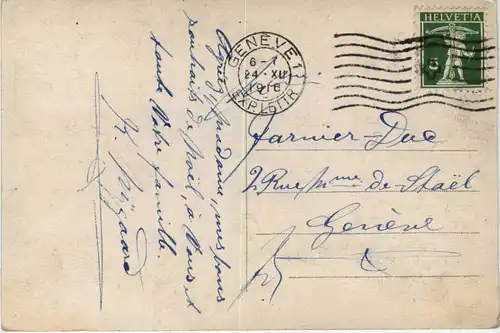 HELVETIA
5
GENÈVE 1
6-7
24·XII
1916
EXP. LETTR.
Agréez, Madame, mes bons
souhaits de Noël, à Vous et
toute Votre famille.
Farnier-Duc
2 Rue Mme de Staël
Genève